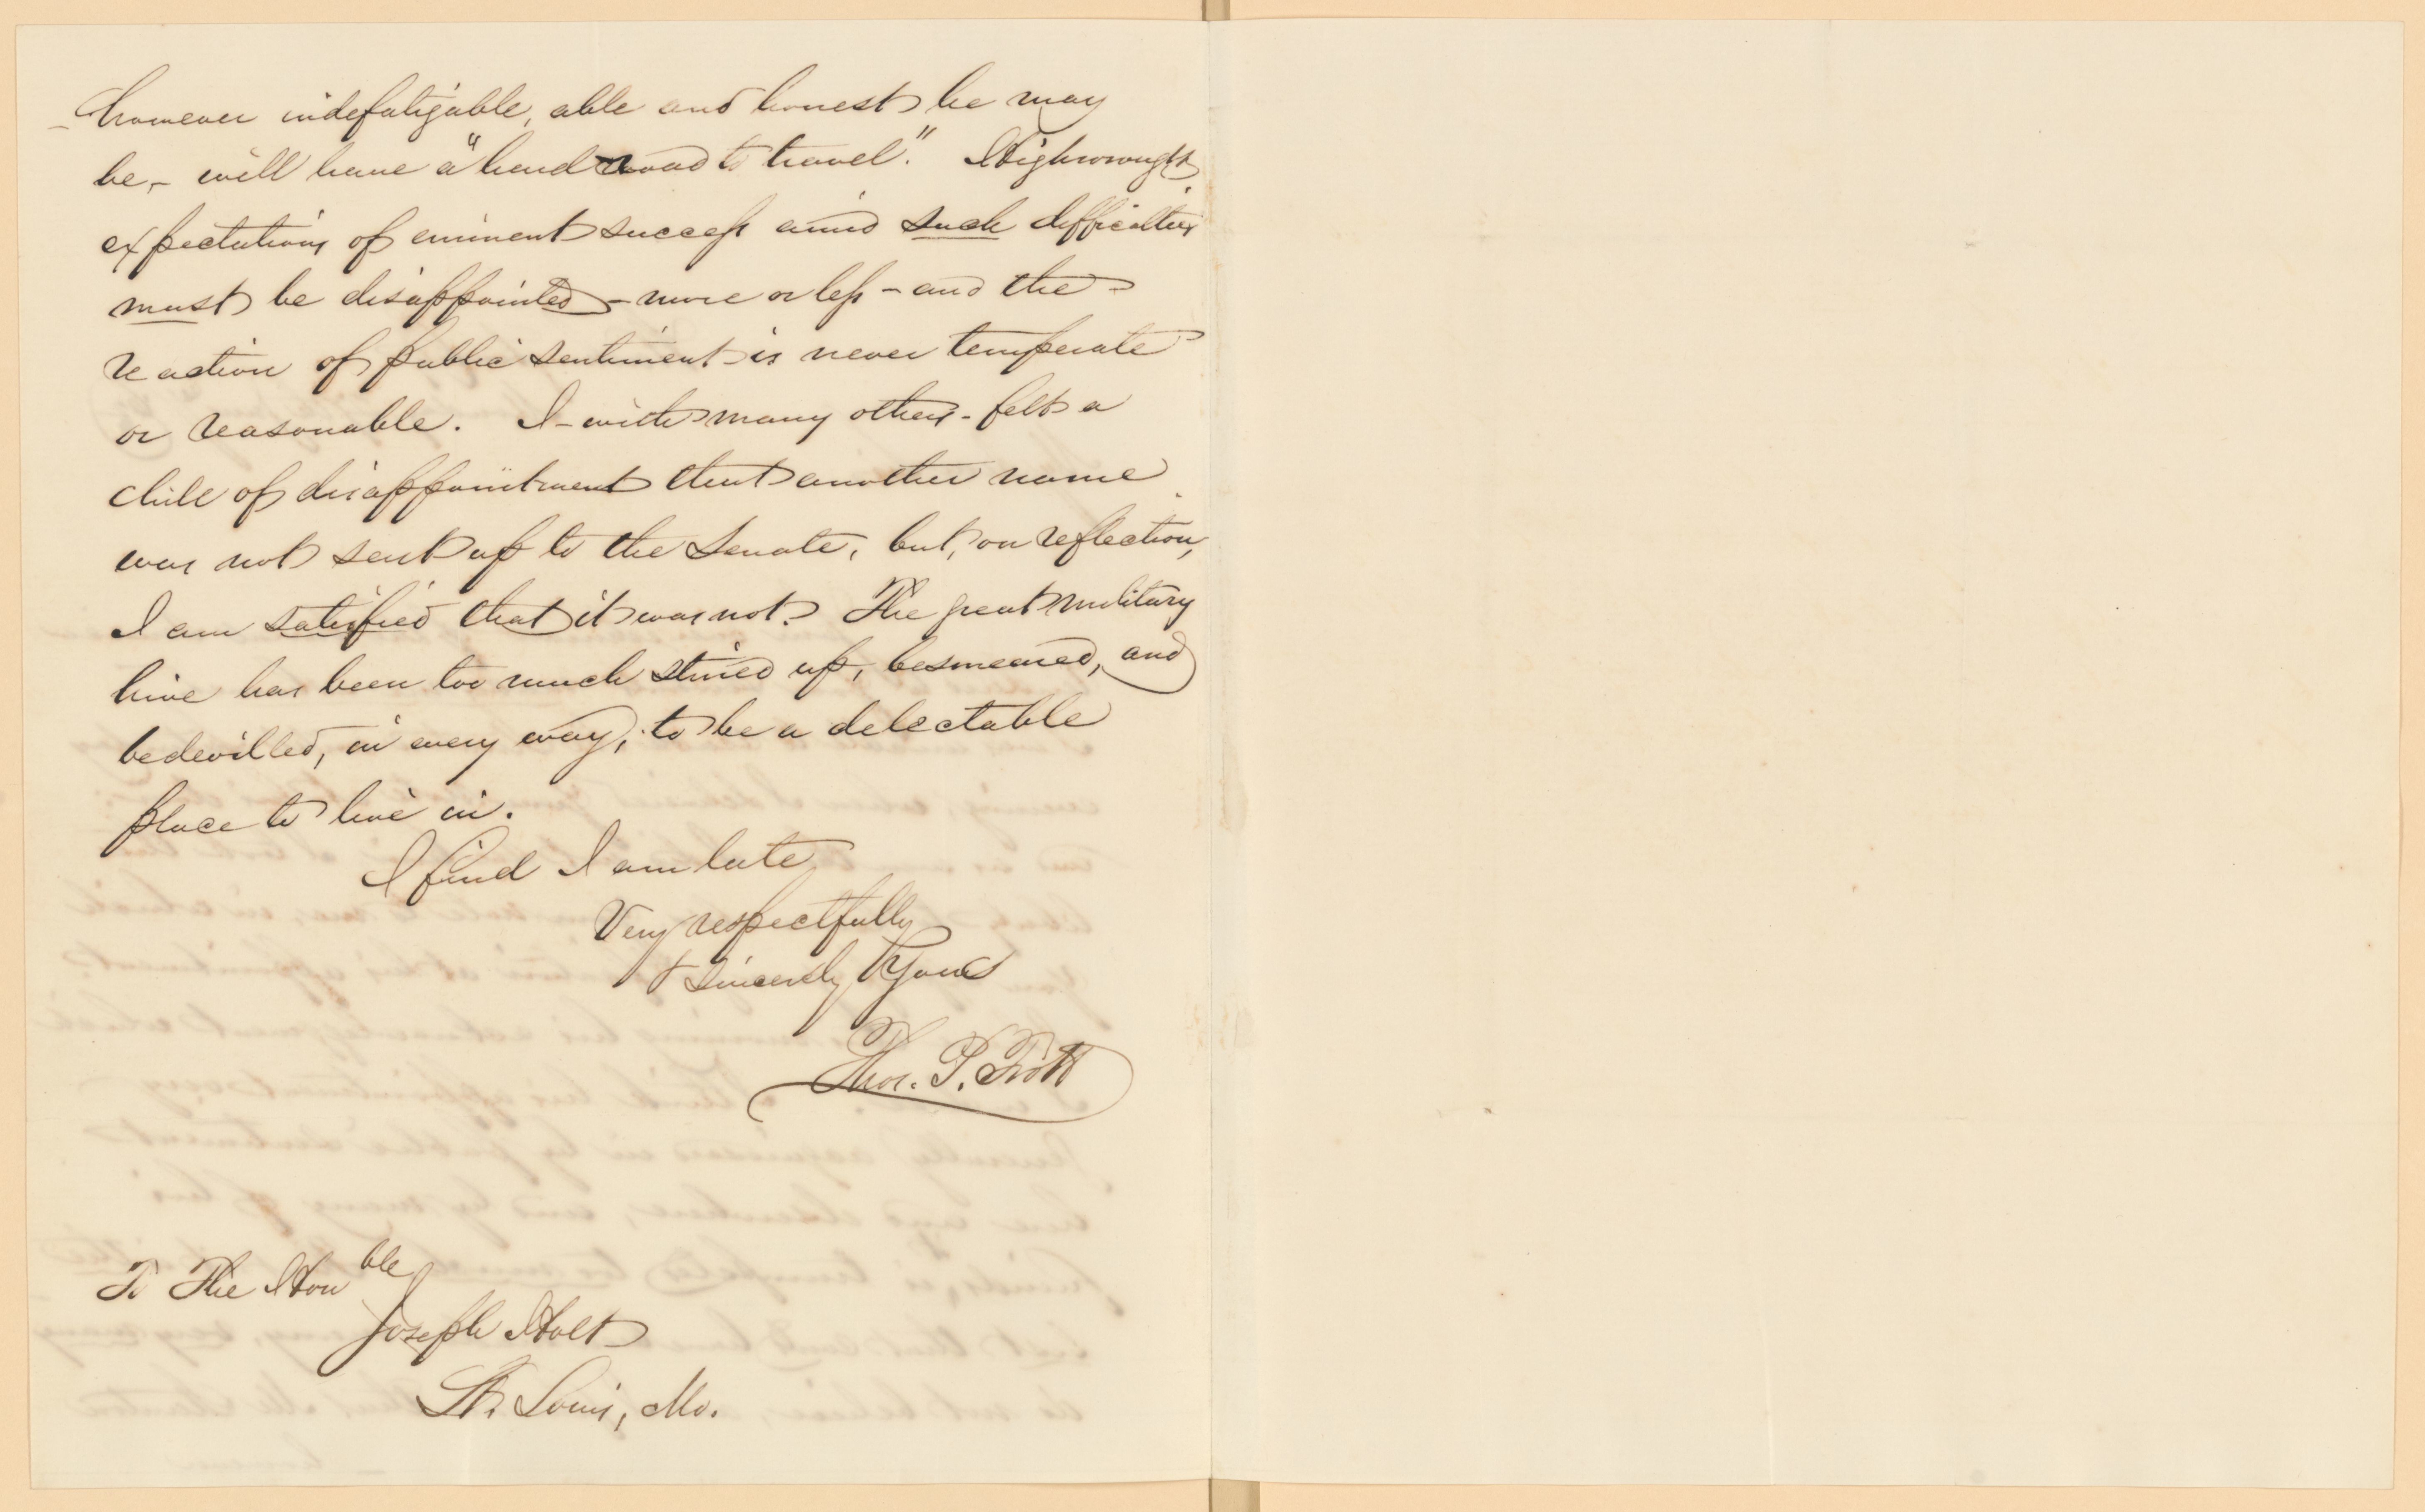 - however indefatigable, able and honest he may
be, - will have a "hard road to travel". Highwrought
expectations of eminent success amid such difficulties
must be disappointed - more or less - and the
reaction of public sentiment is never temperate
or reasonable. I - with many others - felt a
chill of disappointment that another name
was not sent up to the Senate, but, on reflection,
I am satisfied that it was not. The great military
hive has been too much stirred up, besmeared, and
bedevilled, in every way, to be a delectable
place to live in.
I find I am late
Very respectfully
& sincerely Yours
Thos. P. Trott
To The Honble
Joseph Holt
St. Louis, Mo.